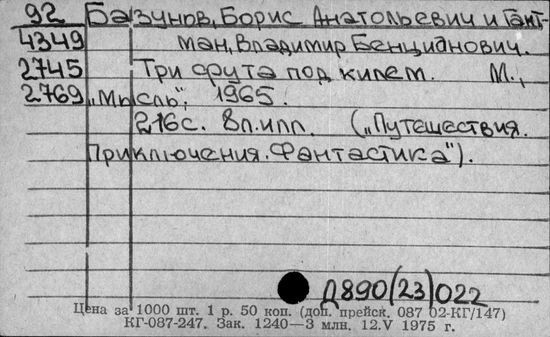 92 Базунов, Борис Анатольевич и Гант-
4349 ман, Владимир Бенцианович.
2745 Три фута под килем. М.,
2769 „Мысль", 1965.
216с. 8л.илл. („Путешествия.
Приключения. Фантастика").
Д890(23)022
Цена за 1000 шт. 1 р. 50 коп. (доп. прейск. 087 02-КГ/147)
КГ-087-247. Зак. 1240—3 млн. 12.V 1975 г.